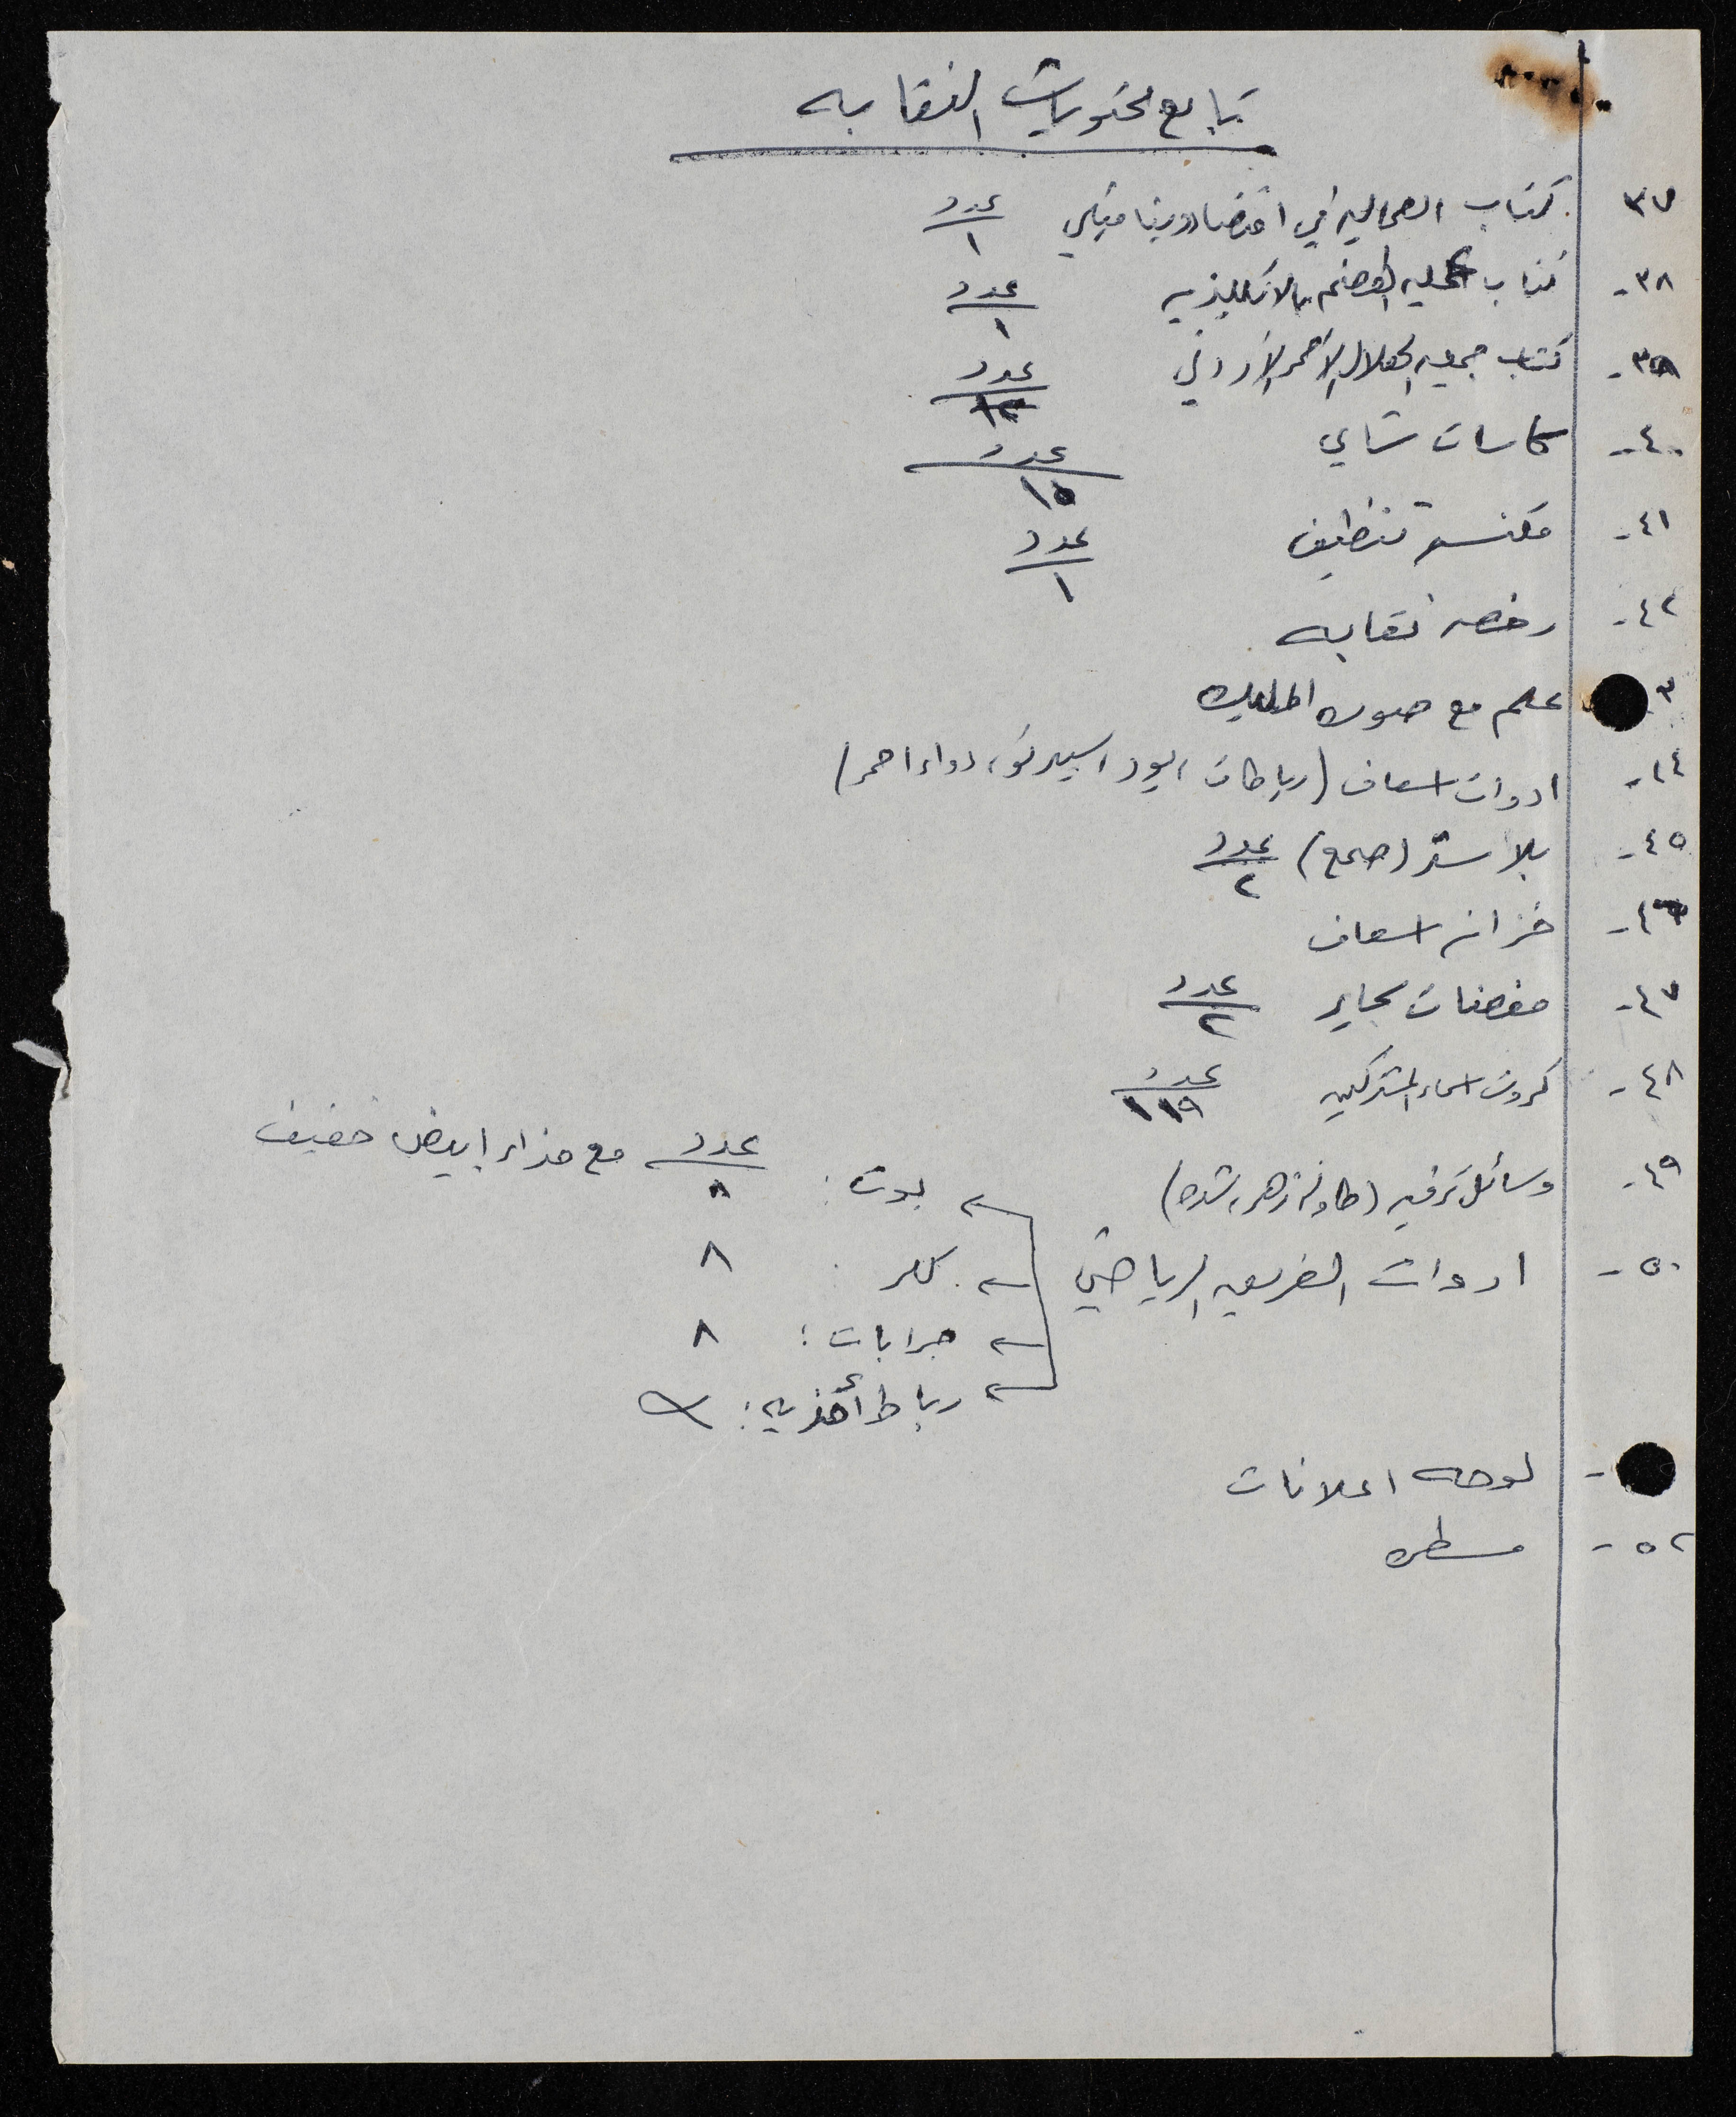 تابع محتويات النقابه
٣٧ كتاب العماليه في اقتصاد ديناميكي عدد ١
٣٨- كتاب بالانكليزيه عدد ١
٣٩- كتاب جمعيه الهلال الأحمر الأردني عدد ١٢
٤٠- كاسات شاي عدد ١٥
٤١- مكنسة تنظيف عدد ١
٤٢- رخصه نقابه
٣ علم مع صوره الملك
٤٤- ادوات اسعاف (رباطات ، يود ، سبيرتو ، دواء احمر)
٤٥- بلاستر (صمغ) عدد ٢
٤٦- خزانه اسعاف
٤٧- منفضات سجاير عدد ٢
٤٨- كروت اسماء المشتركين عدد ١١٩
٤٩- وسائل ترفيه (طاولة زهر ، شده)
٥٠- ادوات الفريق الرياضي
بوت : عدد ٨ مع حذاء ابيض خفيف
٨
جرابات : ٨
رباط أحذيه :
- لوحه اعلانات
٥٢- مسطره